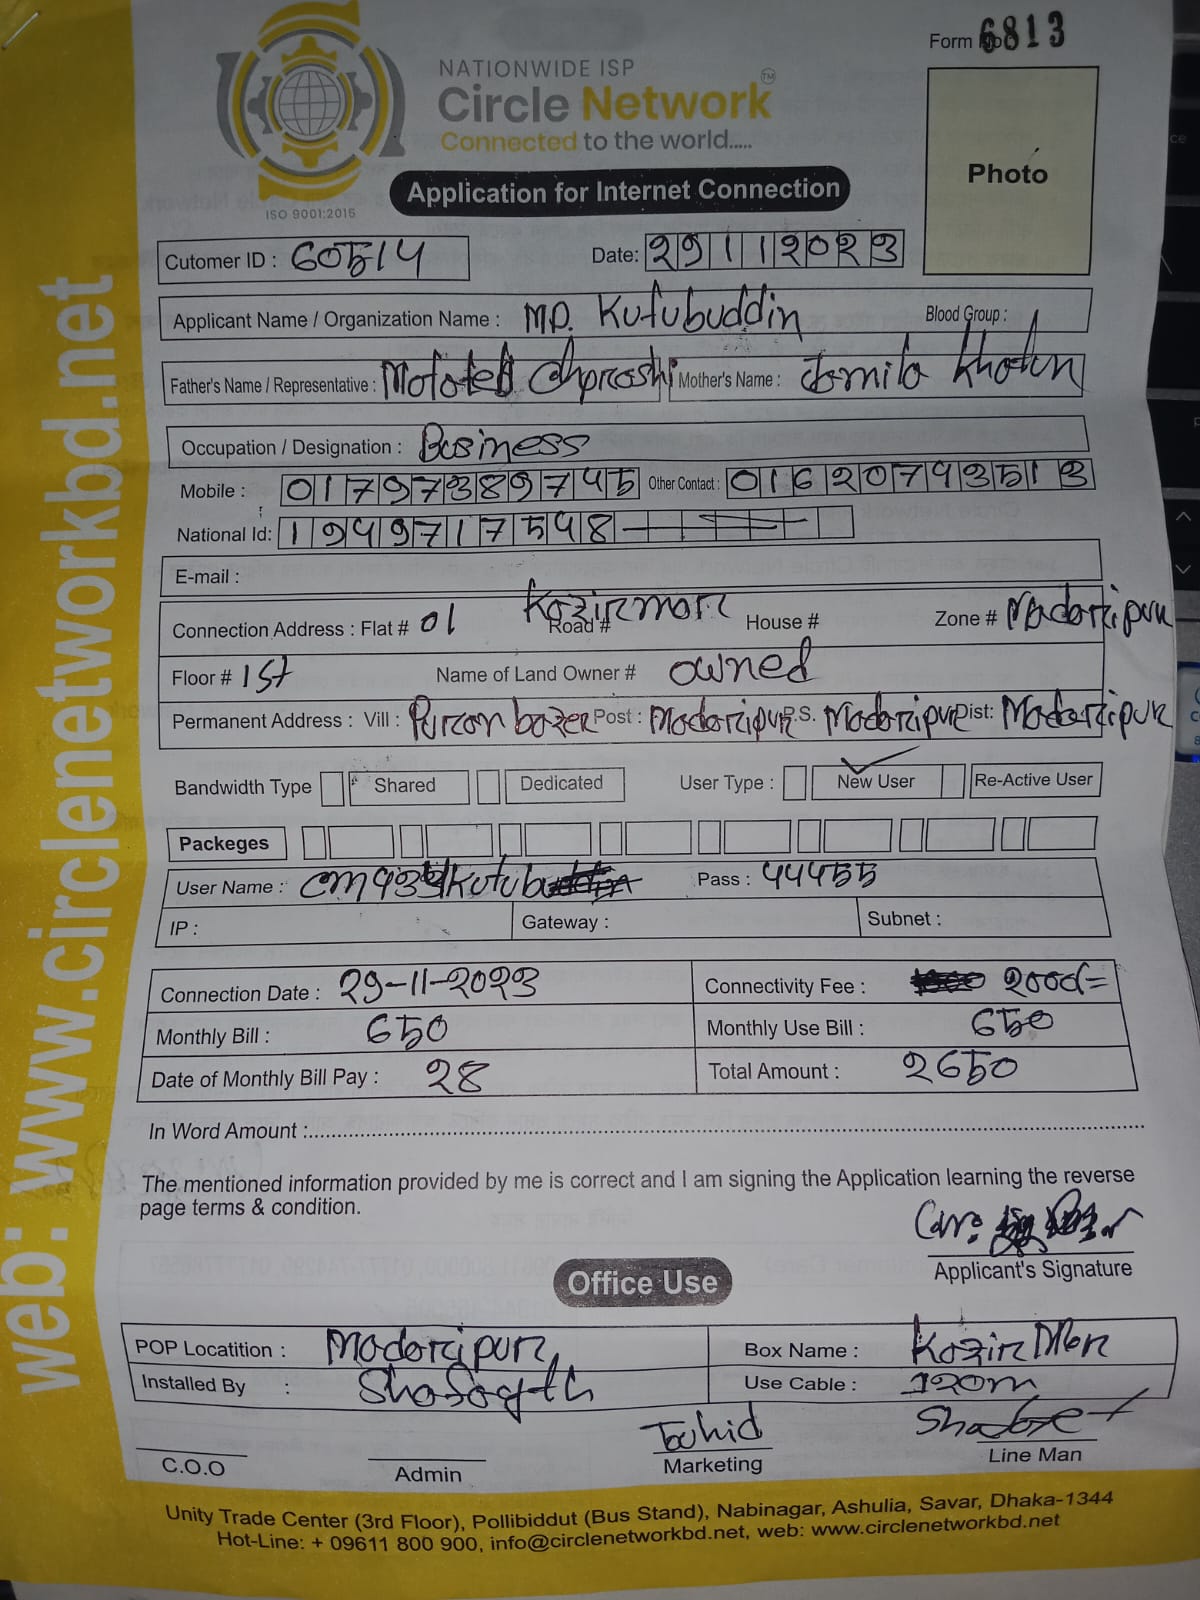 Form No 6813
NATIONWIDE ISP
Circle Network TM
Connected to the world.....
ISO 9001:2015
Application for Internet Connection
Photo
Cutomer ID : 60514
Date: 29112023
Applicant Name / Organization Name : MD. Kutubuddin Blood Group :
Father's Name / Representative : Mother's Name : Jomila Khatun
Occupation / Designation : Business
Mobile : 01797389745 Other Contact : 01620793513
National Id: 1949717598
E-mail :
Connection Address : Flat # 01 Road # Kozirmorr House # Zone # Madaripur
Floor # 1st Name of Land Owner # owned
Permanent Address : Vill : Puran bazer Post : Madaripur P.S. Madaripur Dist: Madaripur
Bandwidth Type Shared Dedicated User Type : New User Re-Active User
Packeges
User Name : Pass : 44455
IP : Gateway : Subnet :
Connection Date : 29-11-2023 Connectivity Fee : 2000/=
Monthly Bill : 650 Monthly Use Bill : 650
Date of Monthly Bill Pay : 28 Total Amount : 2650
In Word Amount :
The mentioned information provided by me is correct and I am signing the Application learning the reverse
page terms & condition.
Applicant's Signature
Office Use
POP Locatition : Madaripur Box Name : Kozir Mor
Installed By : Use Cable : 120m
Touhid
C.O.O Admin Marketing Line Man
Unity Trade Center (3rd Floor), Pollibiddut (Bus Stand), Nabinagar, Ashulia, Savar, Dhaka-1344
Hot-Line: + 09611 800 900, info@circlenetworkbd.net, web: www.circlenetworkbd.net
web: www.circlenetworkbd.net